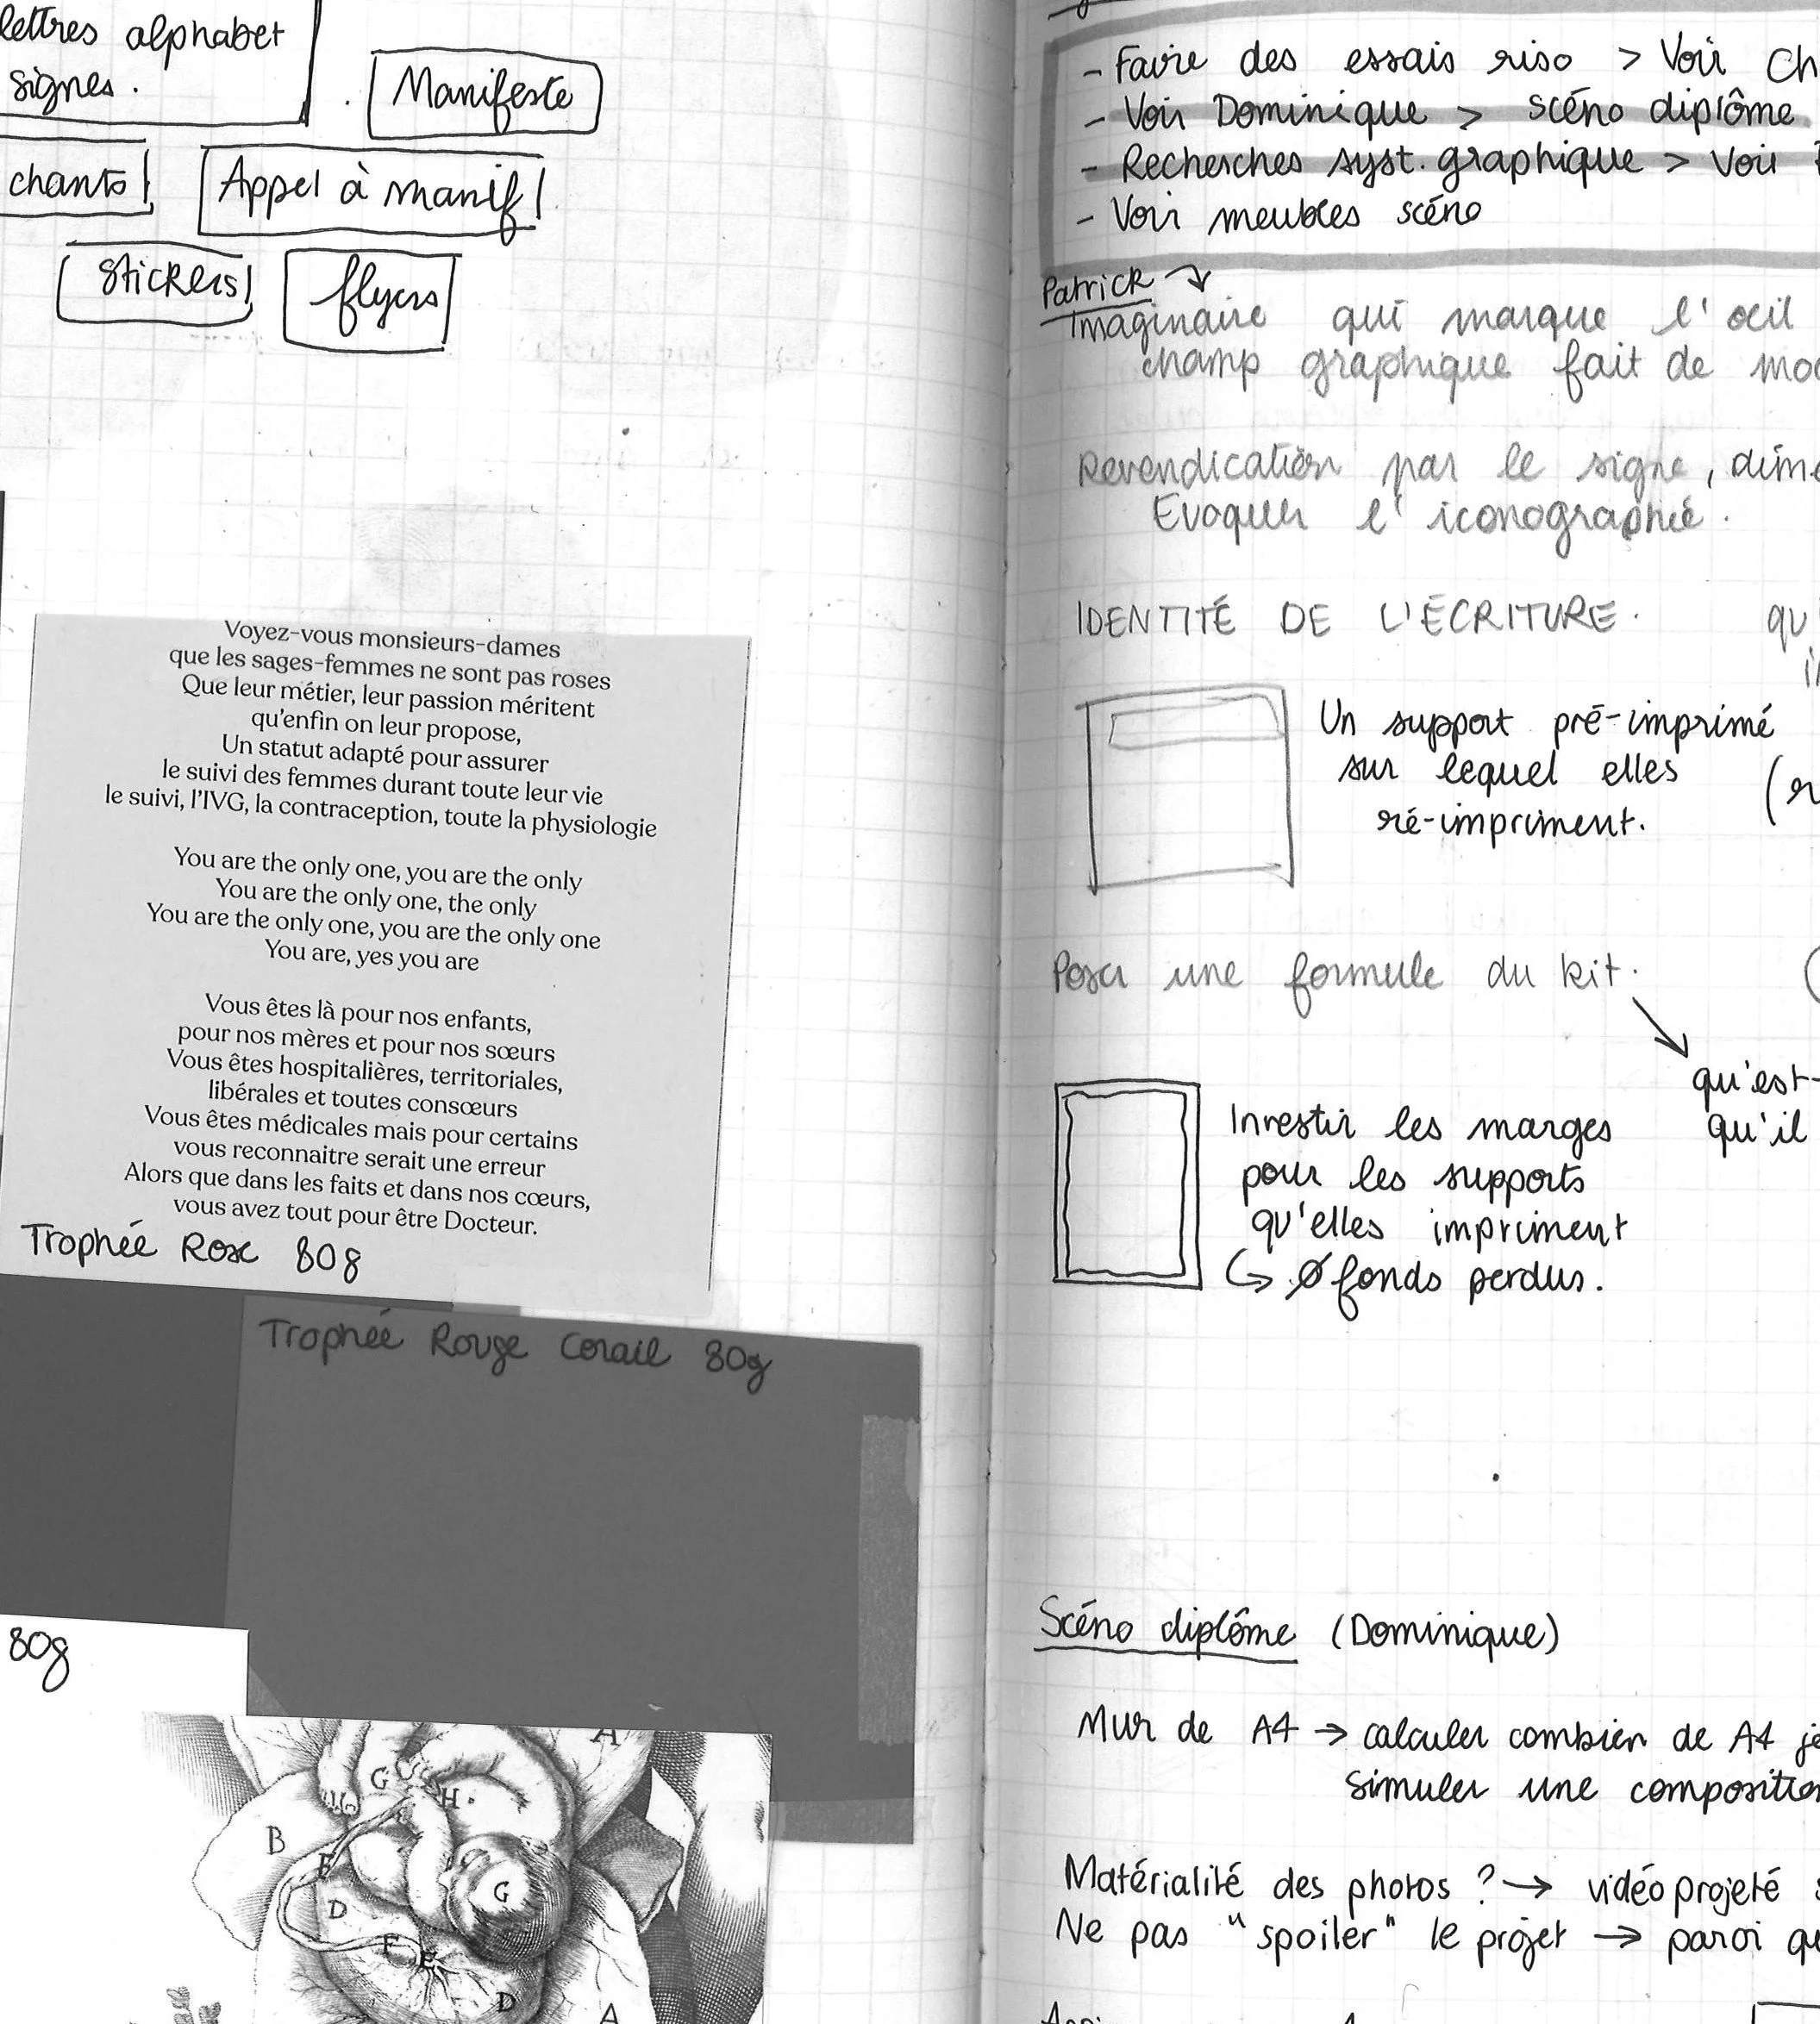 lettres alphabet
signes.
Manifeste
chants
Appel à manif
Stickers
flyers
Voyez-vous monsieurs-dames
que les sages-femmes ne sont pas roses
Que leur métier, leur passion méritent
qu'enfin on leur propose,
Un statut adapté pour assurer
le suivi des femmes durant toute leur vie
le suivi, l'IVG, la contraception, toute la physiologie
You are the only one, you are the only
You are the only one, the only
You are the only one, you are the only one
You are, yes you are
Vous êtes là pour nos enfants,
pour nos mères et pour nos sœurs
Vous êtes hospitalières, territoriales,
libérales et toutes consœurs
Vous êtes médicales mais pour certains
vous reconnaitre serait une erreur
Alors que dans les faits et dans nos cœurs,
vous avez tout pour être Docteur.
Trophée Rose 80g
Trophée Rouge Corail 80g
80g
A
G
H.
B
F
G
D
F
E
D
A
- Faire des essais riso > Voir Ch
- Voir Dominique > scéno diplôme
- Recherches syst. graphique > Voir
- Voir meubles scéno
Patrick
Imaginaire qui marque l'œil
champ graphique fait de mo
Revendication par le signe, dim
Evoquer l'iconographie.
IDENTITÉ DE L'ÉCRITURE. qu'
Un support pré-imprimé
sur lequel elles
ré-impriment.
Poser une formule du kit.
qu'est-
qu'il
Investir les marges
pour les supports
qu'elles impriment
↪ Ø fonds perdus.
Scéno diplôme (Dominique)
Mur de A4 → calculer combien de A4 je
simuler une composition
Matérialité des photos ? → vidéoprojeté
Ne pas "spoiler" le projet → paroi qu